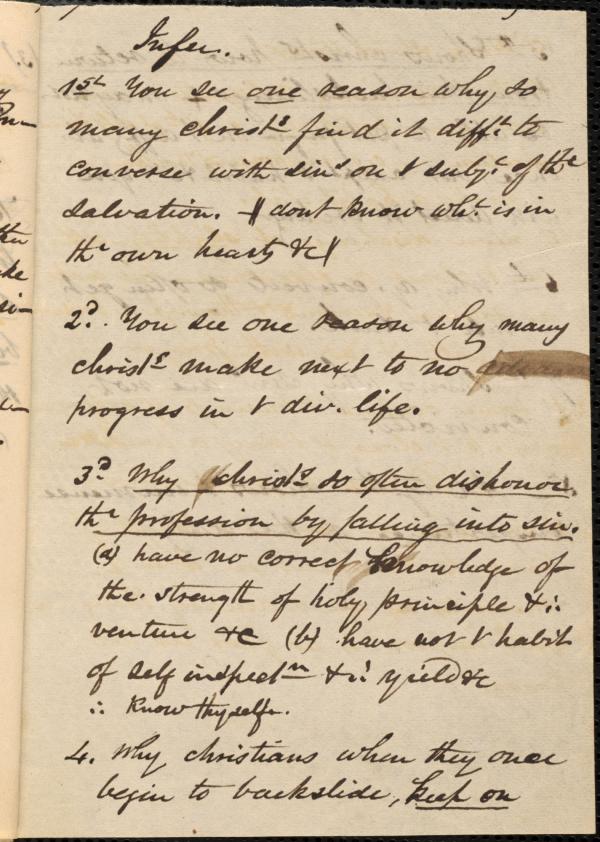 Infer.
1st You see one reason why, so
many christs find it difft to
converse with sins on t subjt of the
salvation. dont know wht is in
thr own hearts &c
2d. You see one reason why many
christs make next to no
progress in t div. life.
3d Why christs so often dishonor
thr profession by falling into sin.
(a) have no correct knowledge of
the strength of holy principle & ∴
venture &c (b) have not t habit
of self inspectn & ∴ yield &c
∴ Know thyself.
4. Why christians when they once
begin to backslide, keep on
ke